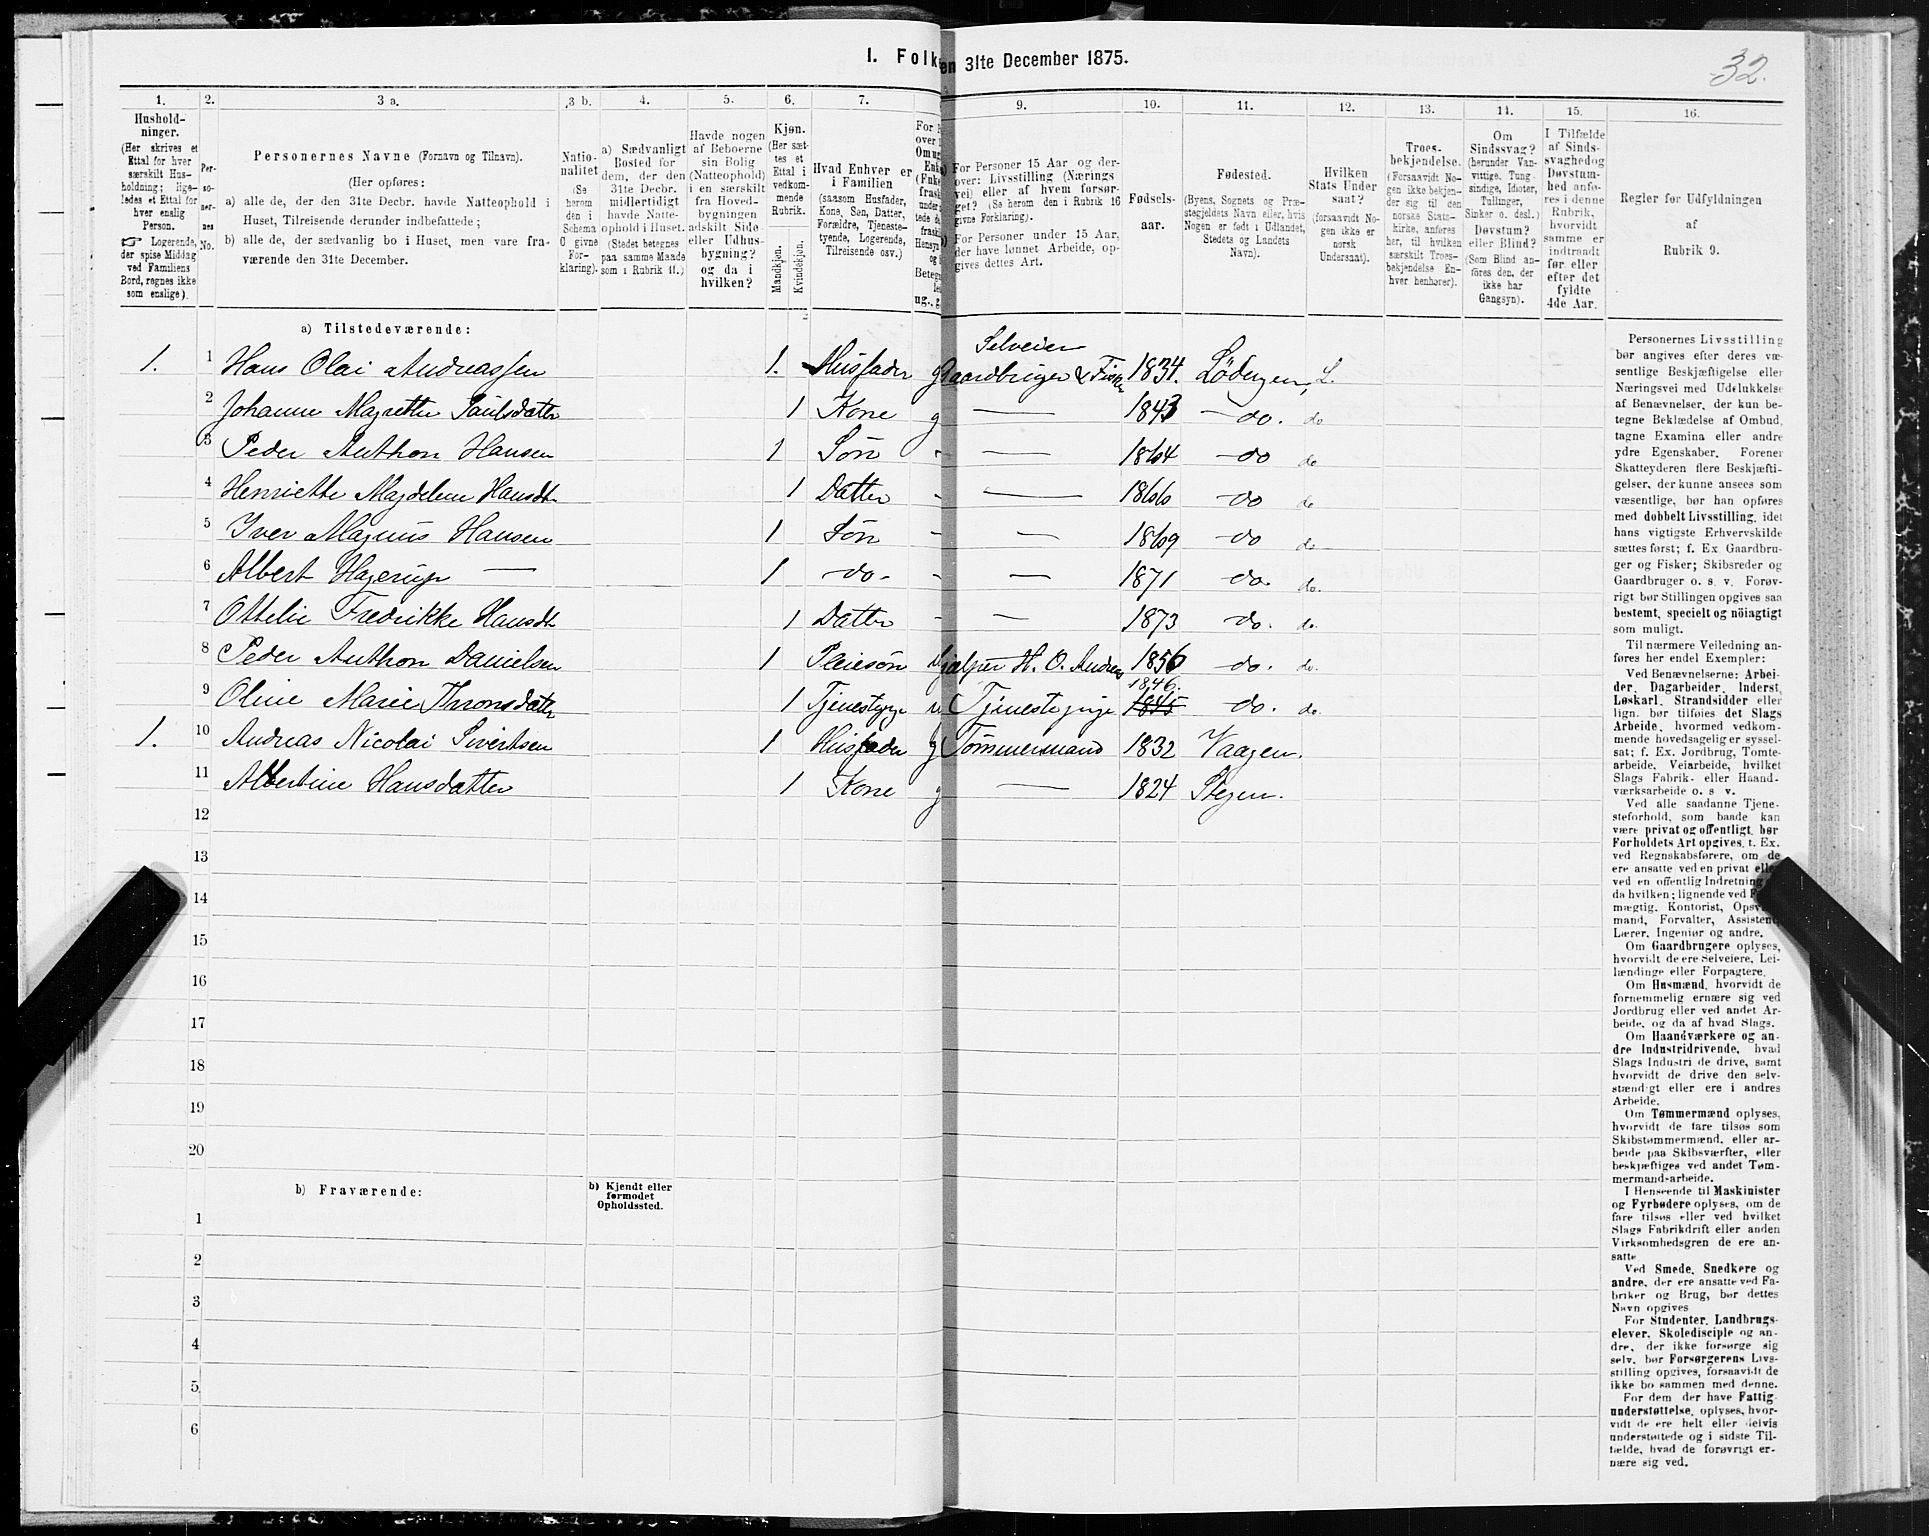 I. Folk en 31te December 1875.
32.
1. 2. 3 a. 3 b. 4. 5. 6. 7. 9. 10. 11. 12. 13. 14. 15. 16.
Hushold-
ninger.
(Her skrives et
Ettal for hver
særskilt Hus-
holdning; lige-
ledes et Ettal for
hver enslig
Person.
☞ Logerende,
der spise Middag
ved Familiens
Bord, regnes ikke
som enslige).
Per-
so-
ner-
nes
No.
Personernes Navne (Fornavn og Tilnavn).
(Her opføres:
a) alle de, der den 31te Decbr. havde Natteophold i
Huset, Tilreisende derunder indbefattede;
b) alle de, der sædvanlig bo i Huset, men vare fra-
værende den 31te December.
Natio-
nalitet
(Se
herom
den i
Schema
0 givne
For-
klaring).
a) Sædvanligt
Bosted for
dem, der den
31te Decbr.
midlertidigt
havde Natte-
ophold i Huset.
(Stedet betegnes
paa samme Maade
som i Rubrik 11.)
Havde nogen
af Beboerne
sin Bolig
(Natteophold)
i en særskilt
fra Hoved-
bygningen
adskilt Side-
eller Udhus-
bygning?
og da i
hvilken?
Kjøn.
(Her sæt-
tes et
Ettal i
vedkom-
mende
Rubrik.
Mandkjøn.
Kvindekjøn.
Hvad Enhver er
i Familien
(saasom Husfader,
Kone, Søn, Datter,
Forældre, Tjeneste-
tyende, Logerende,
Tilreisende osv.)
For Personer 15 Aar og der-
over: Livsstilling (Nærings-
vei) eller af hvem forsør-
get? (Se herom den i Rubrik 16
givne Forklaring).
For Personer under 15 Aar,
der have lønnet Arbeide, op-
gives dettes Art.
Fødsels-
aar.
Fødested.
(Byens, Sognets og Præ-
stegjeldets Navn eller, hvis
Nogen er født i Udlandet,
Stedets og Landets
Navn).
Hvilken
Stats Under
saat?
(forsaavidt No-
gen ikke er
norsk
Undersaat).
Troes-
bekjendelse.
(Forsaavidt No-
gen ikke bekjen-
der sig til den
norske Stats-
kirke, anføres
her, til hvilken
særskilt Troes-
bekjendelse En-
hver henhører).
Om
Sindssvag?
(herunder Van-
vittige, Tung-
sindige, Idioter,
Tullinger,
Sinker o. desl.)
Døvstum?
eller Blind?
(Som Blind an-
føres den, der
ikke har
Gangsyn).
I Tilfælde
af Sinds-
svaghed og
Døvstum-
hed anfø-
res i denne
Rubrik,
hvorvidt
samme er
indtraadt
før eller
efter det
fyldte
4de Aar.
Regler før Udfyldningen
af
Rubrik 9.
a) Tilstedeværende:
1. 1 Hans Olai Andreassen 1. Husfader g Selveier Gaardbruger & Fisker 1834. Lødingen, L.
2 Johanne Magrethe Paulsdatter 1 Kone g — 1843 - do. do
3 Peder Anthon Hansen 1 Søn - — 1864 - do do
4 Henriette Magdelene Hansdt 1 Datter - — 1866 - do do
5 Iver Magnus Hansen 1 Søn - — 1869 - do do
6 Albert Hagerup — 1 - do - - — 1871 - do. do.
7 Ottelie Fredrikke Hansdt 1 Datter - — 1873 - do. do
8 Peder Anthon Danielsen 1 Pleiesøn hjælper H. O. Andreas 1856 - do. do.
9 Oline Marie Thronsdatter 1 Tjenestepige u Tjenestepige 1846. 1845 - do. do
1. 10 Andreas Nicolai Sivertsen 1 Husfader g Tømmermand 1832 Vaagen.
11 Albertine Hansdatter 1 Kone g — 1824 Stegen.
12
13
14
15
16
17
18
19
20
b) Fraværende:
b) Kjendt eller
formodet
Opholdssted.
1
2
3
4
5
6
Personernes Livsstilling
bør angives efter deres væ-
sentlige Beskjæftigelse eller
Næringsvei med Udelukkelse
af Benævnelser, der kun be-
tegne Beklædelse af Ombud,
tagne Examina eller andre
ydre Egenskaber. Forener
Skatteyderen flere Beskjæfti-
gelser, der kunne ansees som
væsentlige, bør han opføres
med dobbelt Livsstilling, idet
hans vigtigste Erhvervskilde
sættes først; f. Ex Gaardbru-
ger og Fisker; Skibsreder og
Gaardbruger o. s. v. Forøv-
rigt bør Stillingen opgives saa
bestemt, specielt og nöiagtigt
som muligt.
Til nærmere Veiledning an-
føres her endel Exempler:
Ved Benævnelserne: Arbei-
der, Dagarbeider, Inderst,
Løskarl, Strandsidder eller
lign. bør tilføies det Slags
Arbeide, hvormed vedkom-
mende hovedsagelig er syssel-
sat; f. Ex. Jordbrug, Tomte-
arbeide, Veiarbeide, hvilket
Slags Fabrik- eller Haand-
værksarbeide o. s. v.
Ved alle saadanne Tjene-
steforhold, som baade kan
være privat og offentligt, bør
Forholdets Art opgives, t. Ex.
ved Regnskabsførere, om de
ere ansatte ved en privat eller
ved en offentlig Indretning
da hvilken; lignende ved
mægtig, Kontorist, Opsyns-
mand, Forvalter, Assistent,
Lærer, Ingeniør og andre.
Om Gaardbrugere oplyses,
hvorvidt de ere Selveiere, Lei-
lændinge eller Forpagtere.
Om Husmænd, hvorvidt de
fornemmelig ernære sig ved
Jordbrug eller ved andet Ar-
beide, og da af hvad Slags.
Om Haandværkere og an-
dre Industridrivende, hvad
Slags Industri de drive, samt
hvorvidt de drive den selv-
stændigt eller ere i andres
Arbeide.
Om Tømmermænd oplyses,
hvorvidt de fare tilsøs som
Skibstømmermænd, eller ar-
beide paa Skibsværfter, eller
beskjæftiges ved andet Tøm-
mermand-arbeide.
I Henseende til Maskinister
og Fyrbødere oplyses, om de
fare tilsøs eller ved hvilket
Slags Fabrikdrift eller anden
Virksomhedsgren de ere an-
satte
Ved Smede, Snedkere og
andre, der ere ansatte ved Fa-
briker og Brug, bør dettes
Navn opgives
For Studenter, Landbrugs-
elever, Skoledisciple og an-
dre, der ikke forsørge sig
selv, bør Forsørgerens Livs-
stilling opgives, forsaavidt de
ikke bo sammen med denne.
For dem der have Fattig-
understøttelse, oplyses, hvor-
vidt de ere helt eller delvis
understøttede og i sidste Til-
fælde, hvad de forøvrigt er-
nære sig ved.